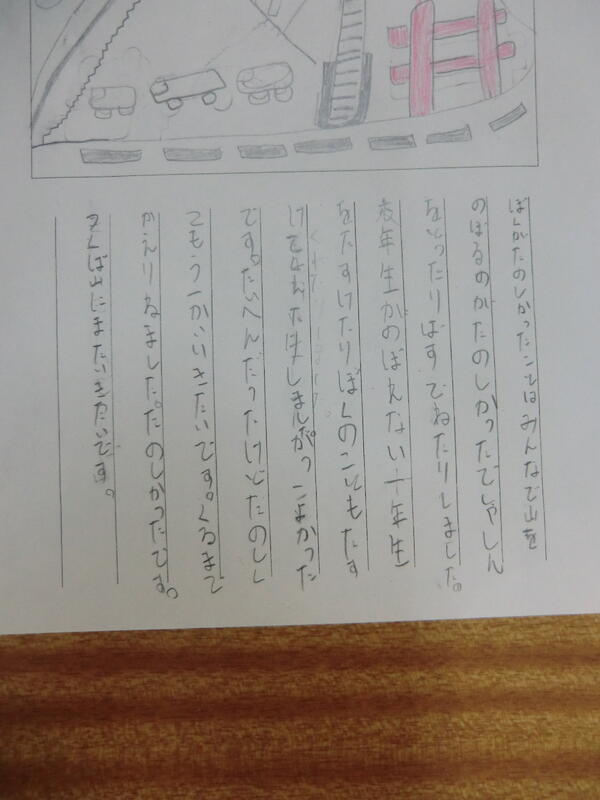 ぼくがたのしかったことはみんなで山を
のぼるのがたのしかったでしゃしん
をとったりばすでねたりしました。
六年生がのぼれない一年生
をたすけたりぼくのこともたす
けてくれたりしましたがっこよかった
です。たいへんだったけどたのしく
てもう一かいいきたいです。くるまで
かえりねました。たのしかったです。
つくば山にまたいきたいです。